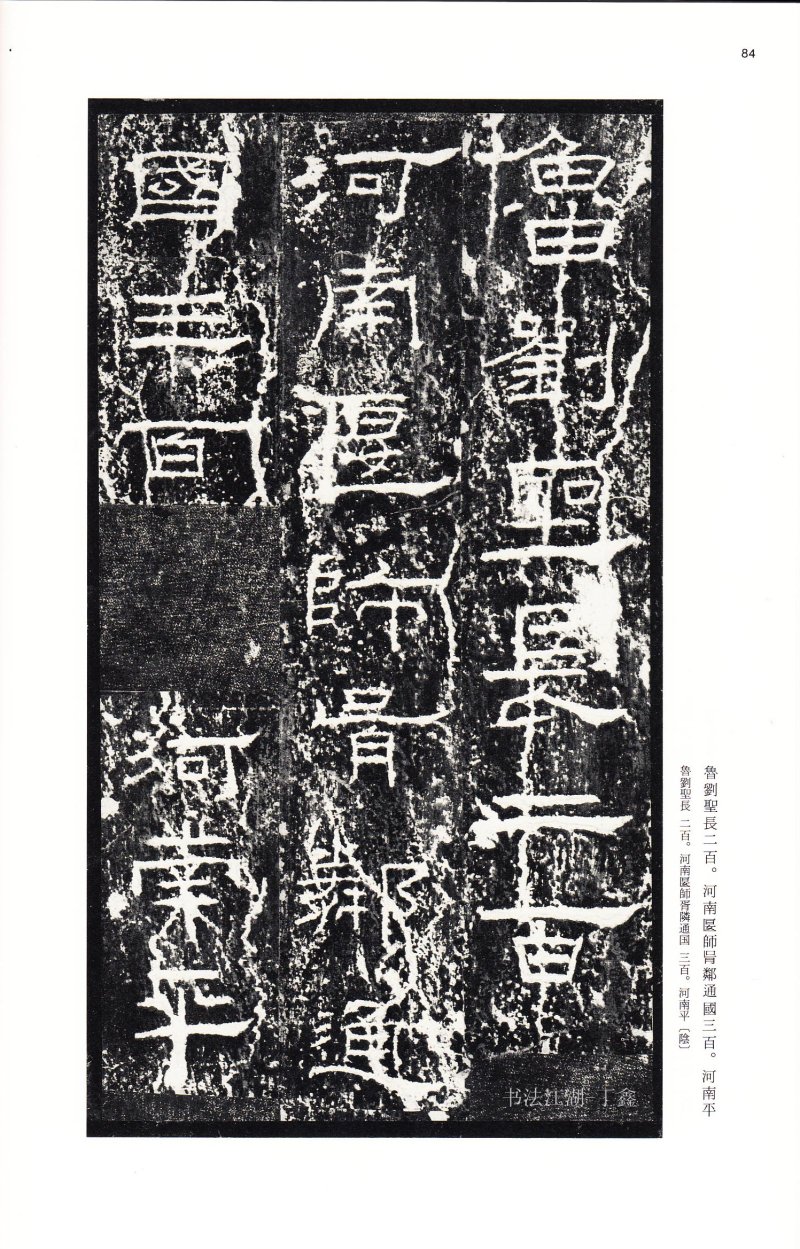 84
魯劉聖長二百
河南匽師胥鄰通
國三百
河南平
魯劉聖長二百。河南匽師胥鄰通國三百。河南平
魯劉聖長 二百。河南匽師胥隣通国 三百。河南平〔陰〕
书法江湖 丁鑫